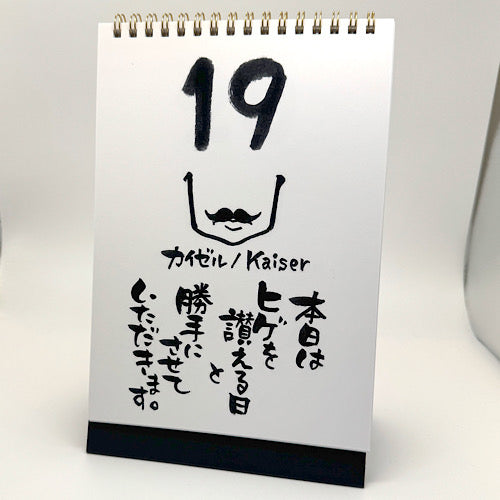 19
カイゼル/Kaiser
本日は
ヒゲを
讃える日
と
勝手に
させて
いただきます。